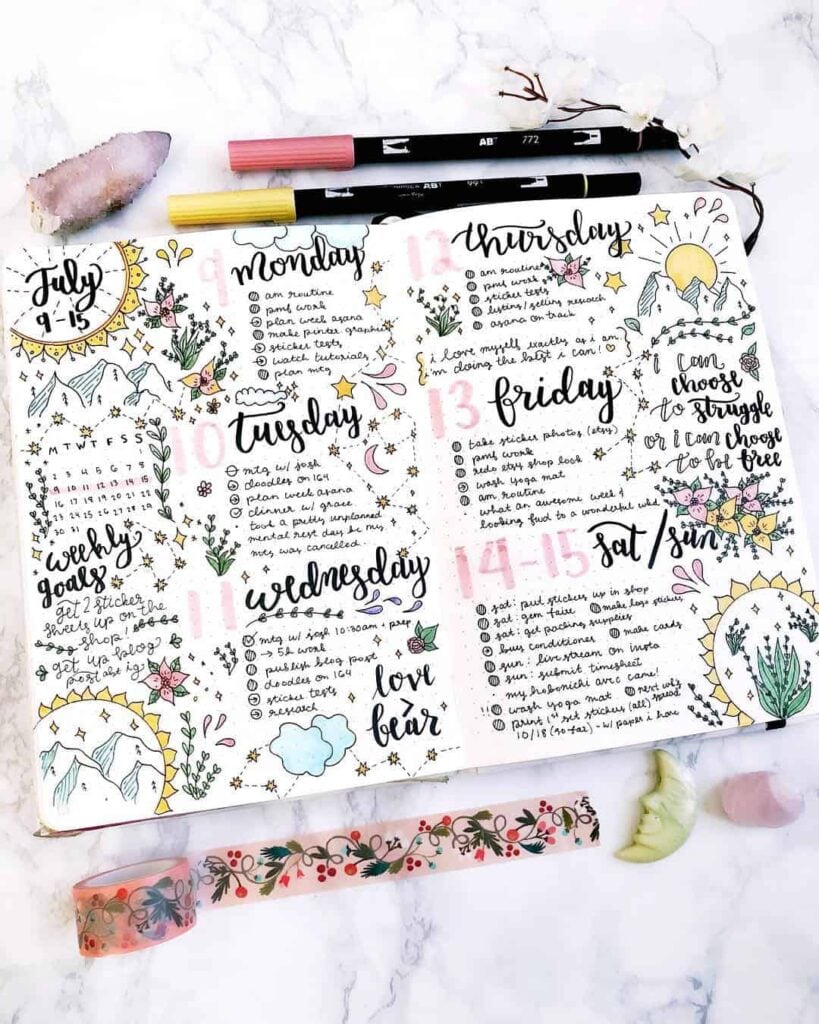 AB
772
AB
991
July
9-15
M T W T F S S
1
2 3 4 5 6 7 8
9 10 11 12 13 14 15
16 17 18 19 20 21 22
23 24 25 26 27 28 29
30 31
weekly
goals
get 2 sticker
sheets up on the
shop!
get up blog
post abt hg!
9 monday
am routine
pms work
plan week asana
make printer graphic
sticker tests
watch tutorials
plan mtg
10 tuesday
mtg w/ josh
doodles on 164
plan week asana
dinner w/ grace
took a pretty unplanned
mental rest day bc my
mtg was cancelled.
11 wednesday
mtg w/ josh 10:30am + prep
→ 5h work
publish blog post
doodles on 164
sticker tests
research
love
>
bear
12 thursday
am routine
pms work
sticker tests
listing/selling research
asana on track
i love myself exactly as i am.
i'm doing the best i can!
i can
choose
to struggle
or i can choose
to be free
13 friday
take sticker photos (etsy)
pms work
redo etsy shop look
wash yoga mat
am routine
what an awesome week!
looking fwd to a wonderful wknd
14-15 sat/sun
sat: put stickers up in shop
sat: gem faire
make hogs stickers
sat: get packing supplies
buy conditioner
make cards
sun: livestream on insta
sun: submit timesheet
my hobonichi avec came!
!! wash yoga mat
next wk's spread
print 1st set stickers (all)
10/18 - w/ paper i have